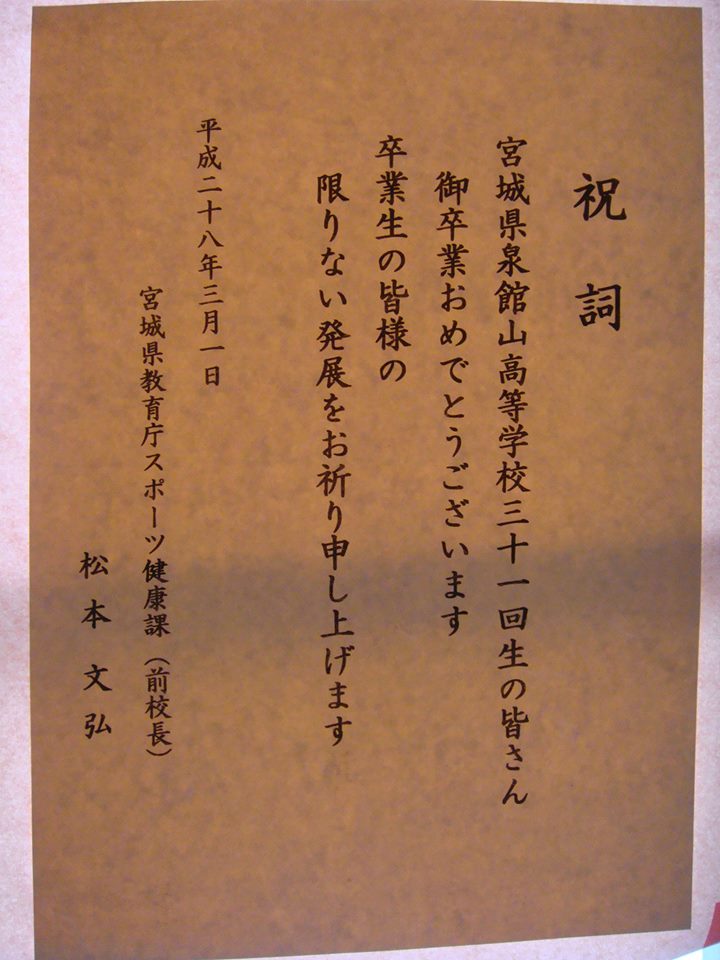 祝詞
宮城県泉館山高等学校三十一回生の皆さん
御卒業おめでとうございます
卒業生の皆様の
限りない発展をお祈り申し上げます
平成二十八年三月一日
宮城県教育庁スポーツ健康課（前校長）
松本文弘